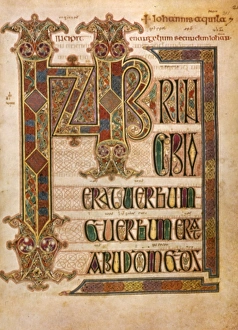 + Iohannis aquila
incipit euangelium secundum iohan
INPRIN
CIPIO
ERAT UERBUM
ET UERBUM ERAT
APUD DM ET DS